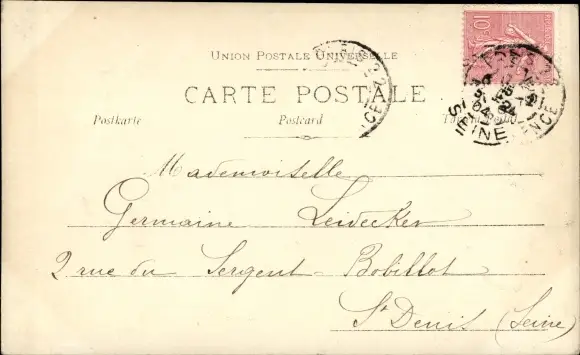 10
UNION POSTALE UNIVERSELLE
CARTE POSTALE
Postkarte Postcard
SEINE
Mademoiselle
Germaine Leidecker
2 rue du Sergent-Bobillot
St Denis (Seine)